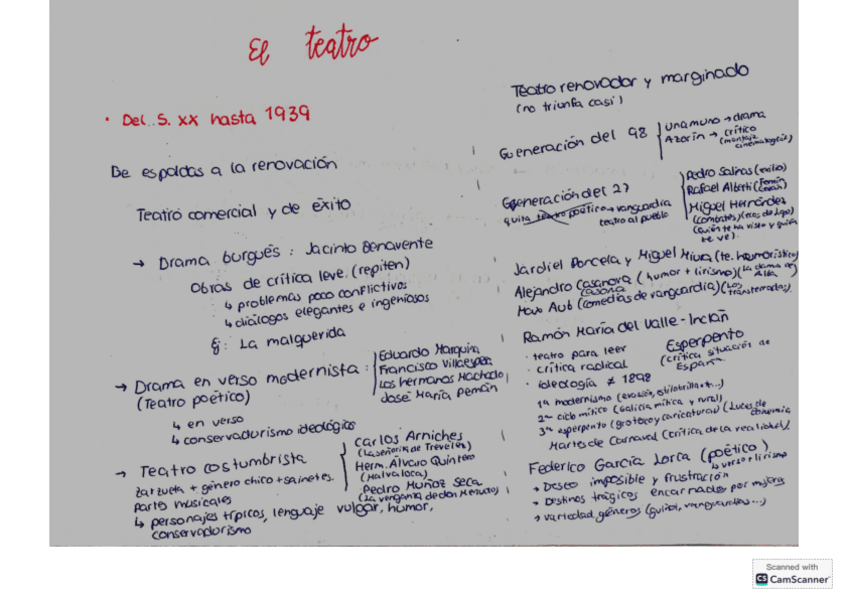 El teatro
• Del S. XX hasta 1939
De espaldas a la renovación
Teatro comercial y de éxito
→ Drama burgués : Jacinto Benavente
Obras de crítica leve. (repiten)
↳ problemas poco conflictivos
↳ diálogos elegantes e ingeniosos
Ej: La malquerida
→ Drama en verso modernista :
(Teatro poético)
Eduardo Marquina
Francisco Villaespesa
Los hermanos Machado
José María Pemán
↳ en verso
↳ conservadurismo ideológico
→ Teatro costumbrista
zarzuela + género chico + sainetes.
parte musicales
Carlos Arniches
(La señorita de Trevélez)
Herm. Álvaro Quintero
(Malvaloca)
Pedro Muñoz Seca
(La venganza de don Mendo)
↳ personajes típicos, lenguaje vulgar, humor,
conservadurismo
Teatro renovador y marginado
(no triunfa casi)
Generación del 98
Unamuno → drama
Azorín → crítico
(montaje
cinematográfico)
Generación del 27
quita teatro poético → vanguardia
teatro al pueblo
Pedro Salinas (exilio)
Rafael Alberti
Miguel Hernández
(combates)
(quién te ha visto y quién
te ve).
Jardiel Poncela y Miguel Miura (te. humorístico)
Alejandro Casanova (humor + lirismo) (La dama del
Casona
Alba
Max Aub (comedias de vanguardia) (Los
transterrados)
Ramón María del Valle-Inclán
· teatro para leer
· crítica radical
· ideología ≠ 1898
Esperpento
(crítica situación de
España
1ª modernismo
2ª ciclo mítico (Galicia mítica y rural)
3ª esperpento (grotesco y caricaturas) (Luces de
bohemia
Martes de Carnaval (crítica de la realidad).
Federico García Lorca (poético)
↳ verso + lirismo
→ Deseo imposible y frustración
→ Destinos trágicos encarnados por mujeres
→ variedad géneros (guiñol, vanguardias...)
Scanned with
CS CamScanner